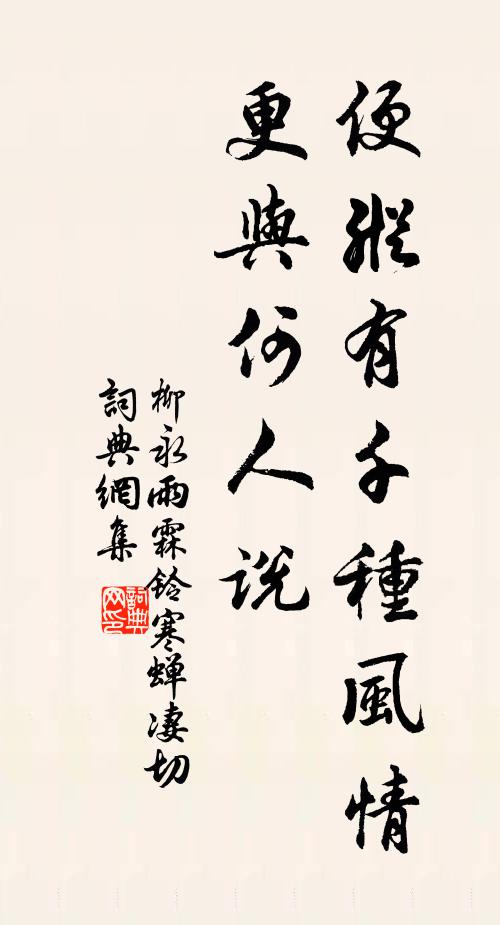 便縱有千種風情
更與何人說
柳永雨霖鈴寒蟬凄切
詞典網集
詞典
网印